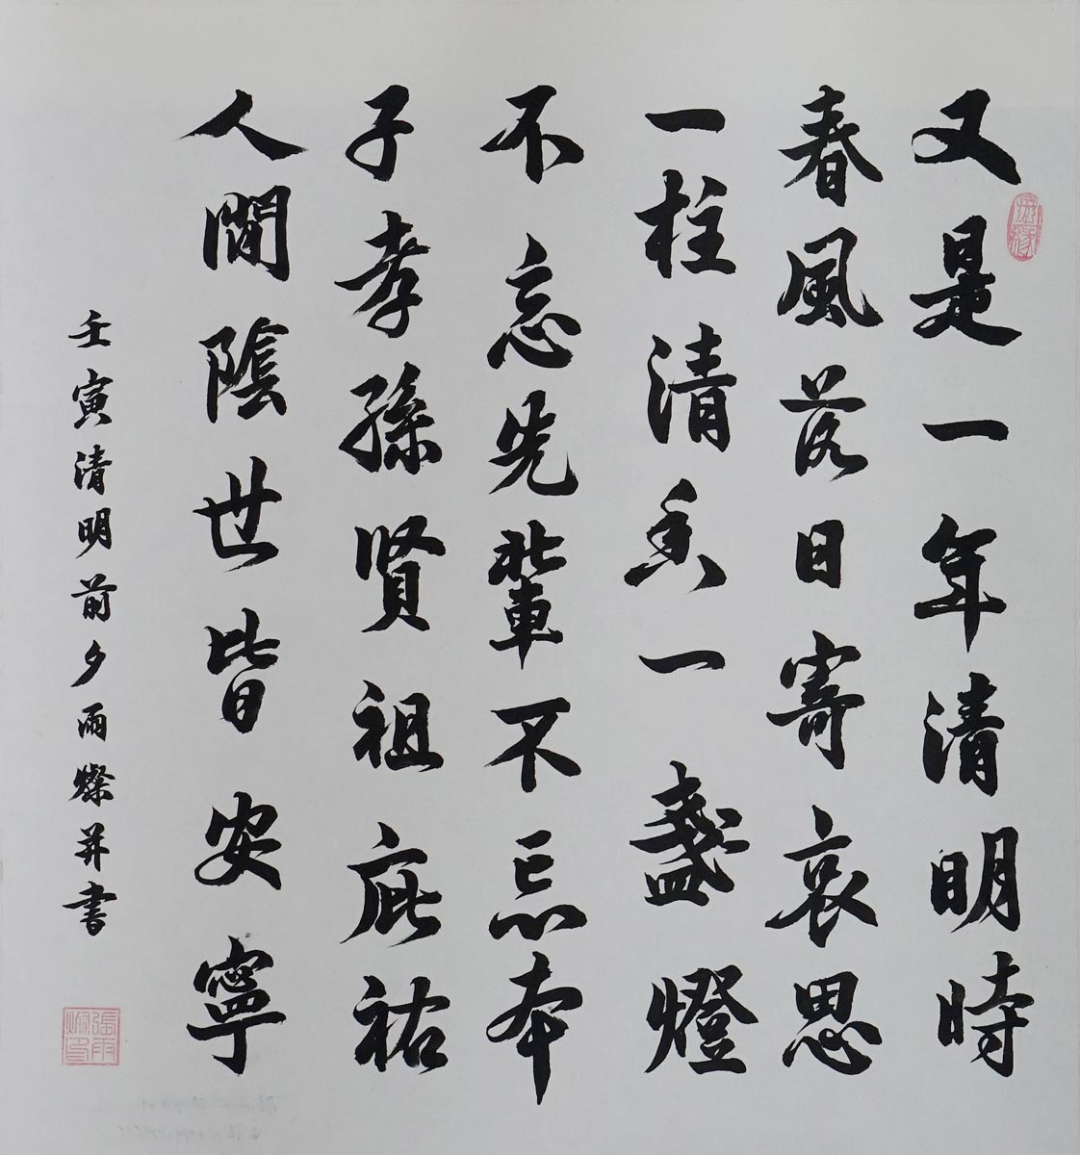 又是一年清明時
春風落日寄哀思
一柱清香一盞燈
不忘先輩不忘本
子孝孫賢祖庇祐
人間陰世皆安寧
壬寅清明前夕雨燦并書
張雨燦印